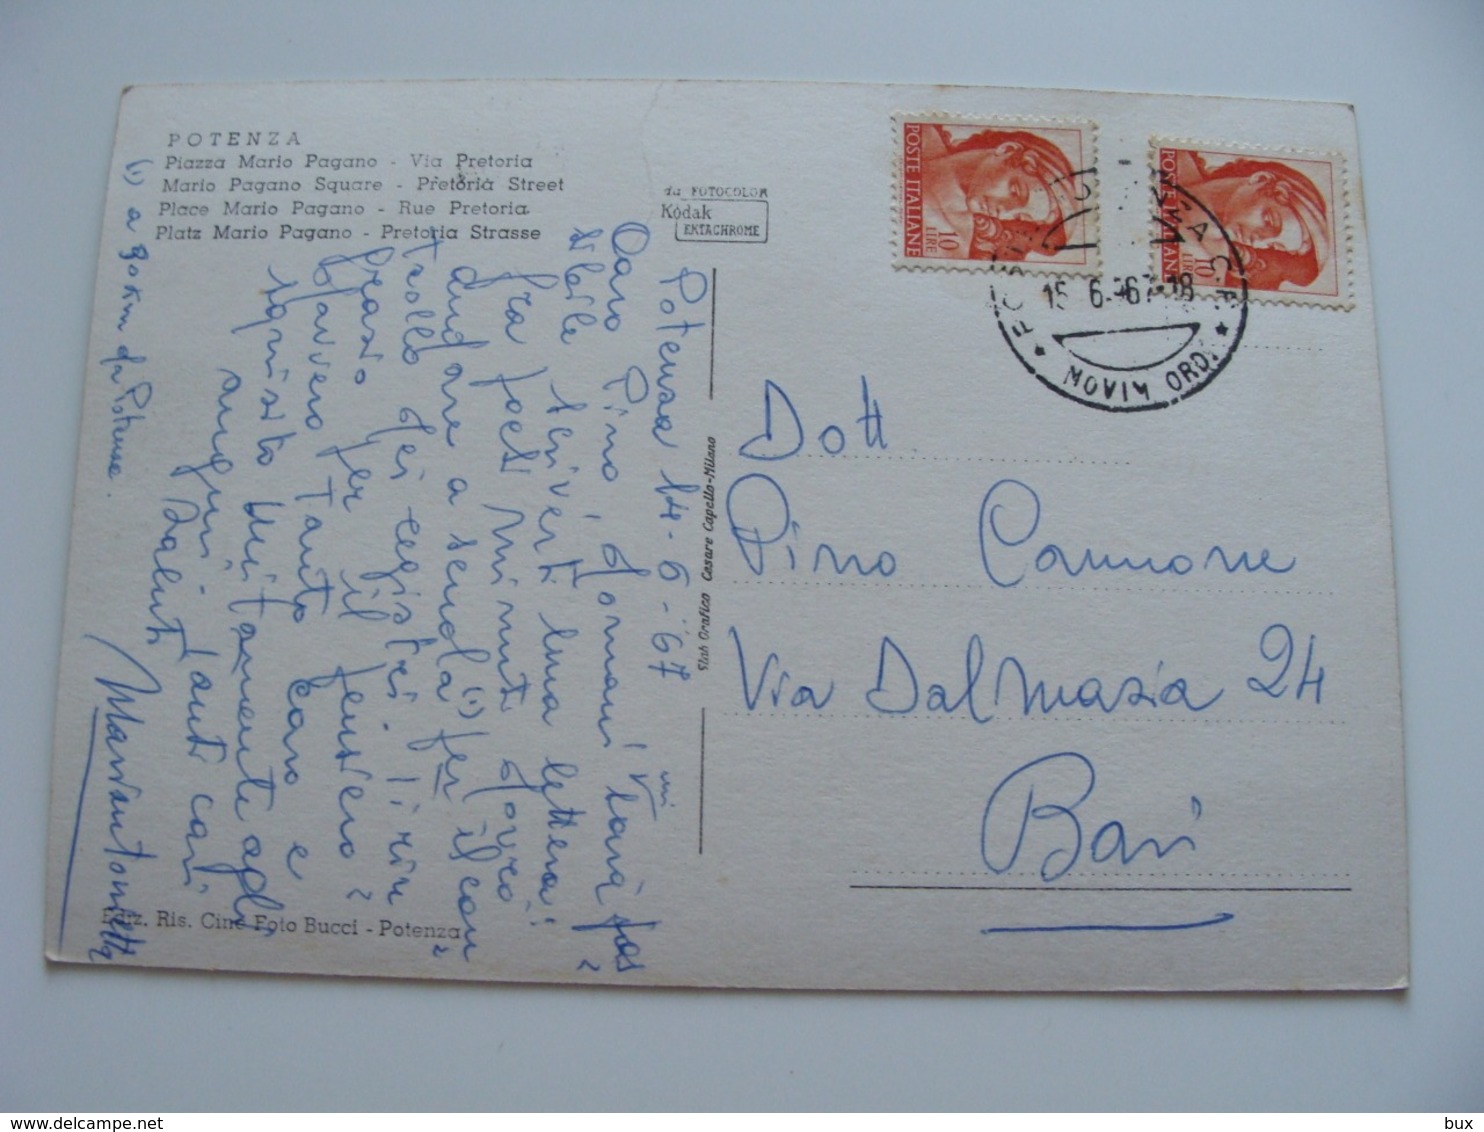 POTENZA
Piazza Mario Pagano - Via Pretoria
Mario Pagano Square - Pretoria Street
Place Mario Pagano - Rue Pretoria
Platz Mario Pagano - Pretoria Strasse
da FOTOCOLOR
Kodak
EKTACHROME
POSTE ITALIANE
10
LIRE
POSTE ITALIANE
10
LIRE
15 6-67-18
MOVIM ORD.
Potenza 14-6-'67
Caro Pino, domani mi sarà pos
sibile scriverti una lettera!
Fra pochi minuti dovrò
andare a scuola (1) per il con
trollo dei registri. Ti rin
grazio per il pensiero
davvero tanto caro e
squisito unitamente agli
auguri. Tanti cari
saluti
Mariantonietta
(1) a 30 km da Potenza.
Dott
Pino Cannone
Via Dalmazia 24
Bari
Stab Grafico Cesare Capello-Milano
Ediz. Ris. Cine Foto Bucci - Potenza
delcampe.net
bux